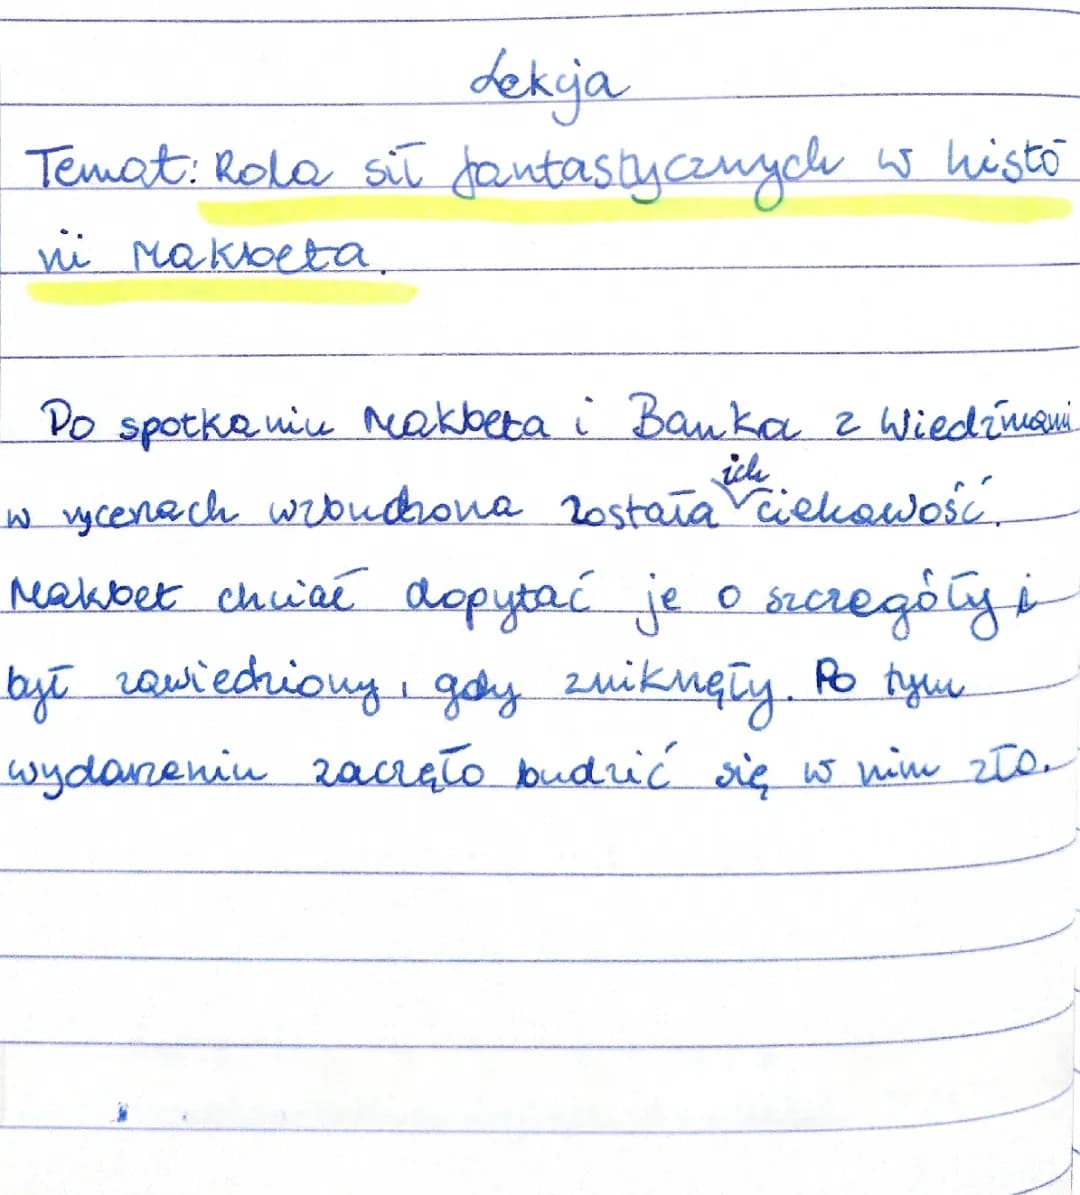 Lekcja
Temat: Rola sił fantastycznych w histo
rii Makbeta.
Po spotkaniu Makbeta i Banka z Wiedźmami
w rycerach wzbudzona została ich ciekawość.
Makbet chciał dopytać je o szczegóły i
był zawiedziony, gdy zniknęły. Po tym
wydarzeniu zaczęło budzić się w nim zło.